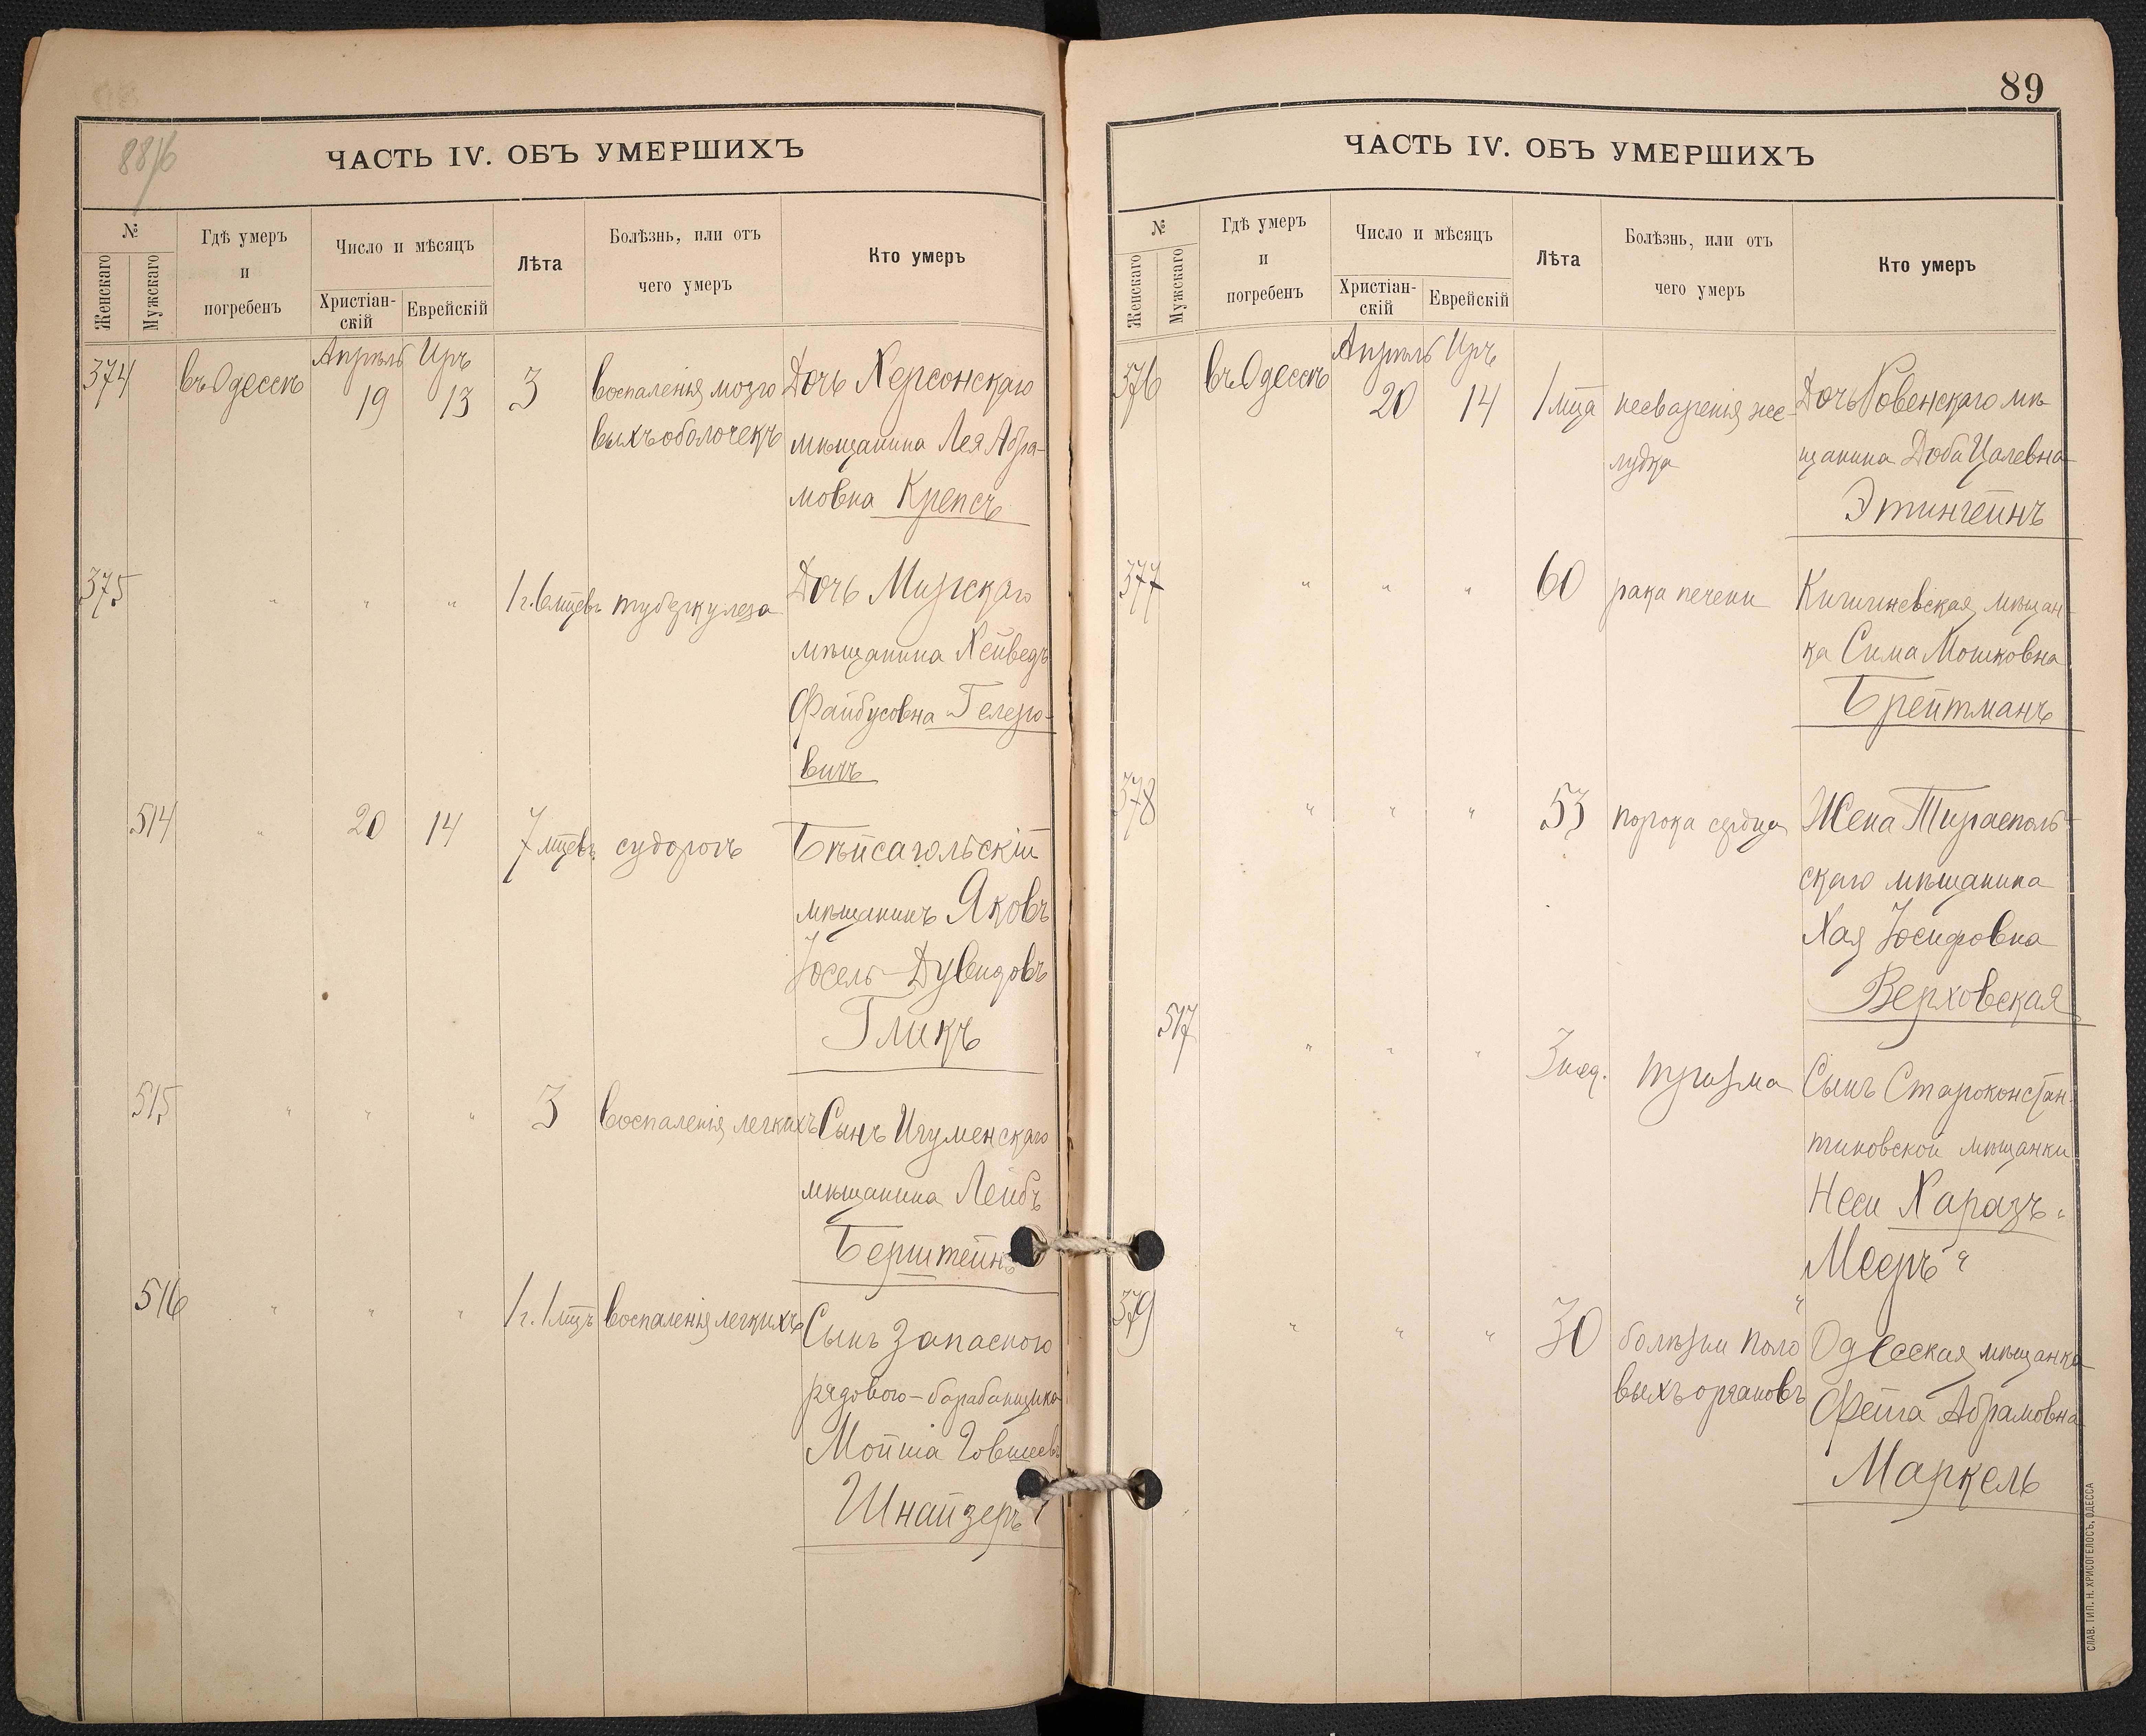 88/б
ЧАСТЬ IV. ОБЪ УМЕРШИХЪ
№
Женскаго
Мужскаго
Гдѣ умеръ
и
погребенъ
Число и мѣсяцъ
Христіан-
скій
Еврейскій
Лѣта
Болѣзнь, или отъ
чего умеръ
Кто умеръ
374
въ Одессѣ
Апрѣль
19
Иръ
13
3
воспаленія мозго
выхъ оболочекъ
Дочь Херсонскаго
мѣщанина Лея Абра-
мовна Крепсъ
375
" " "
1 г. 6 мцевъ
туберкулеза
Дочь Мирскаго
мѣщанина Хейведъ
Файбусовна Гелеро-
вичъ
514
"
20
14
7 мцевъ
судорогъ
Бейсагольскій
мѣщанинъ Яковъ
Іосель-Дувидовъ
Гликъ
515
" " "
3
воспаленія легкихъ
Сынъ Игуменскаго
мѣщанина Лейбъ
Берштейнъ
516
" " "
1 г. 1 мцъ
воспаленія легкихъ
Сынъ запаснаго
рядового-барабанщика
Мойша
Шнайзеръ
89
ЧАСТЬ IV. ОБЪ УМЕРШИХЪ
№
Женскаго
Мужскаго
Гдѣ умеръ
и
погребенъ
Число и мѣсяцъ
Христіан-
скій
Еврейскій
Лѣта
Болѣзнь, или отъ
чего умеръ
Кто умеръ
376
въ Одессѣ
Апрѣль
20
Иръ
14
1 мца
несваренія же-
лудка
Дочь Ровенскаго мѣ
щанина Доба Цалевна
Этингейнъ
377
" " "
60
рака печени
Кишиневская мѣщан-
ка Сима Мошковна
Брейтманъ
378
" " "
53
порока сердца
Жена Тирасполь-
скаго мѣщанина
Хая Іосифовна
Верховская
517
" " "
3 нед.
тризма
Сынъ Староконстан-
тиновской мѣщанки
Неси Харазъ "
Мееръ "
379
" " "
30
болѣзни поло
выхъ органовъ
Одесская мѣщанка
Фейга Абрамовна
Маркель
СЛАВ. ТИП. Н. ХРИСОГЕЛОСЪ, ОДЕССА